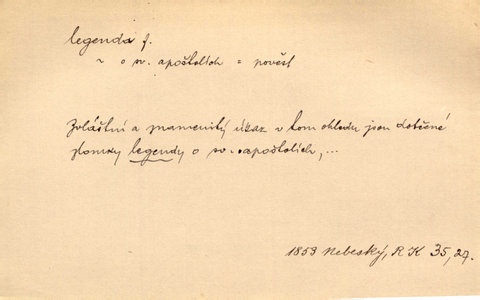 legenda f.
~ o sv. apoštolích = pověst
Zvláštní a znamenitý úkaz v tom ohledu jsou dotčené
zlomky legendy o sv. apoštolích, ...
1853 Nebeský, R K 35, 27.